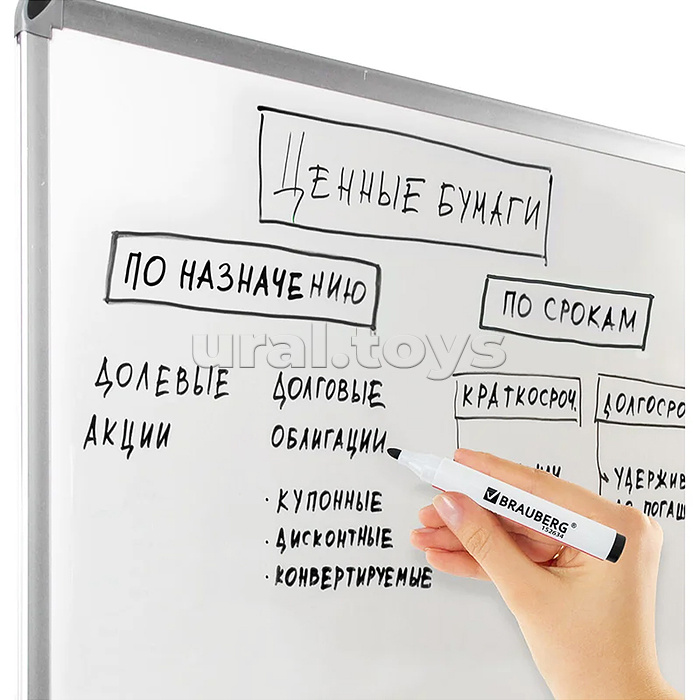 ЦЕННЫЕ БУМАГИ
ПО НАЗНАЧЕНИЮ
ПО СРОКАМ
ural.toys
ДОЛЕВЫЕ
АКЦИИ
ДОЛГОВЫЕ
ОБЛИГАЦИИ
· КУПОННЫЕ
· ДИСКОНТНЫЕ
· КОНВЕРТИРУЕМЫЕ
КРАТКОСРОЧ.
ДОЛГОСРО
УДЕРЖИВ
ДО ПОГАШ
BRAUBERG®
152634